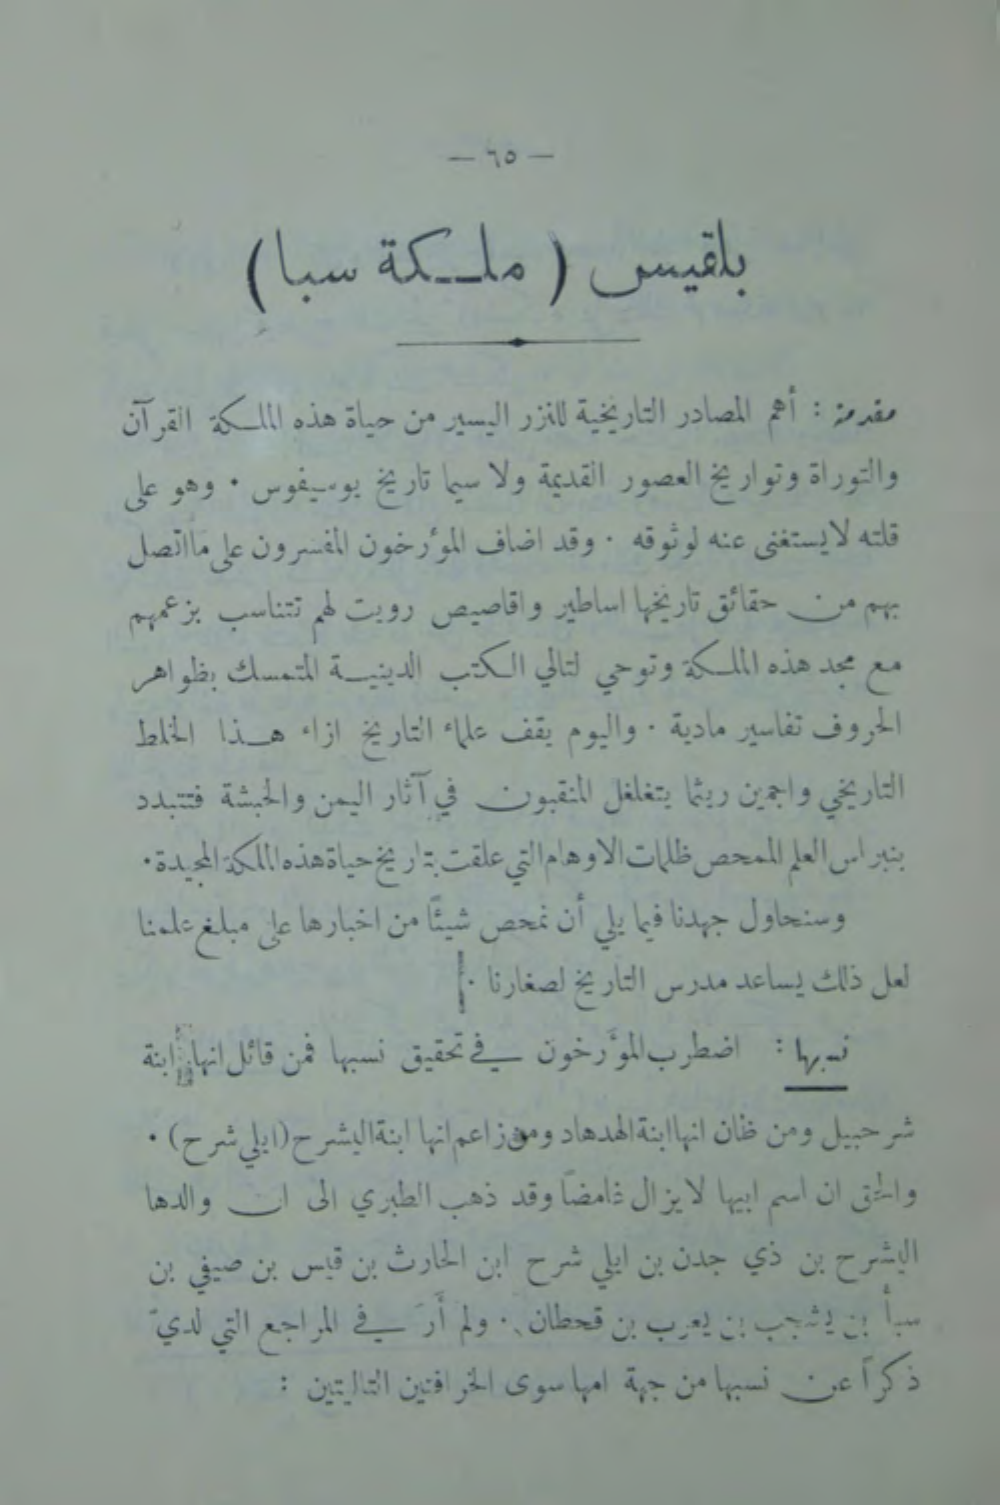 — ٦٥ —
بلقيس ( ملكة سبا )
مقدمة : أهم المصادر التاريخية للنزر اليسير من حياة هذه الملكة القرآن
والتوراة وتواريخ العصور القديمة ولا سيما تاريخ يوسيفوس . وهو على
قلته لا يستغنى عنه لوثوقه . وقد اضاف المؤرخون المفسرون على ما اتصل
بهم من حقائق تاريخها اساطير واقاصيص رويت لهم تتناسب بزعمهم
مع مجد هذه الملكة وتوحي لتالي الكتب الدينية المتمسك بظواهر
الحروف تفاسير مادية . واليوم يقف علماء التاريخ ازاء هذا الخلط
التاريخي واجمين ريثما يتغلغل المنقبون في آثار اليمن والحبشة فتتبدد
بنبراس العلم الممحص ظلمات الاوهام التي علقت بتاريخ حياة هذه الملكة المجيدة .
وسنحاول جهدنا فيما يلي أن نمحص شيئًا من اخبارها على مبلغ علمنا
لعل ذلك يساعد مدرس التاريخ لصغارنا .
نسبها : اضطرب المؤرخون في تحقيق نسبها فمن قائل انها ابنة
شرحبيل ومن ظان انها ابنة الهدهاد ومن زاعم انها ابنة اليشرح (ايلي شرح) .
والحق ان اسم ابيها لا يزال غامضاً وقد ذهب الطبري الى ان والدها
اليشرح بن ذي جدن بن ايلي شرح ابن الحارث بن قيس بن صيفي بن
سبأ بن يشجب بن يعرب بن قحطان . ولم أرَ في المراجع التي لديّ
ذكراً عن نسبها من جهة امها سوى الخرافتين التاليتين :